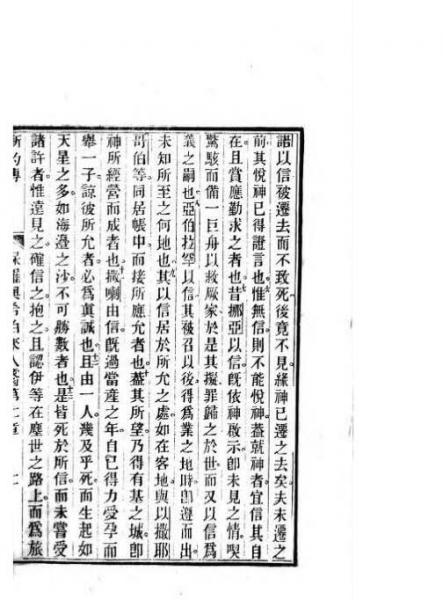 諾以信被遷去而不致死後竟不見緣神已遷之去矣夫未遷之
前其悅神已得證言也惟無信則不能悅神蓋就神者宜信其自
在且賞應勤求之者也昔挪亞以信既依神啟示卽未見之情喫
驚駭而備一巨舟以救厥家於是其擬罪歸之於世而又以信為
義之嗣也亞伯拉罕以信其被召以後得為業之地時卽遷而出
未知所至之何地也其以信居於所允之處如在客地與以撒耶
哥伯等同居帳中而接所應允者也蓋其所望乃得有基之城卽
神所經營而成者也撒喇由信既過當產之年自已得力受孕而
舉一子諒彼所允者必為眞誠也且由一人幾及乎死而生起如
天星之多如海邊之沙不可勝數者也是皆死於所信而未嘗受
諸許者惟遠見之確信之抱之且認伊等在塵世之路上而為旅